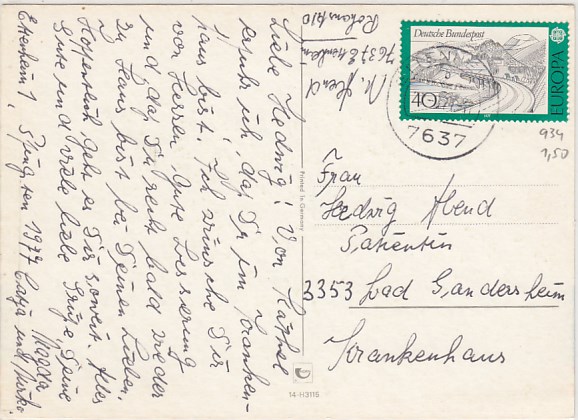 Liebe Hedwig! Von Käthel
erfuhr ich, daß Du im Kranken-
haus bist. Ich wünsche Dir
von Herzen Gute Besserung
und, daß Du recht bald wieder
zu Haus bist bei Deinen Lieben.
Hoffentlich geht es Dir soweit. Alles
Gute und viele liebe Grüße, Deine
Magda
Ettenheim 1, Pfingsten 1977 Katja und Mirko.
M. Abend
7637 Ettenheim
Deutsche Bundespost
40
EUROPA
7637
934
1,50
Printed in Germany
Frau
Hedwig Abend
Patientin
3353 Bad Gandersheim
Krankenhaus
14-H3115